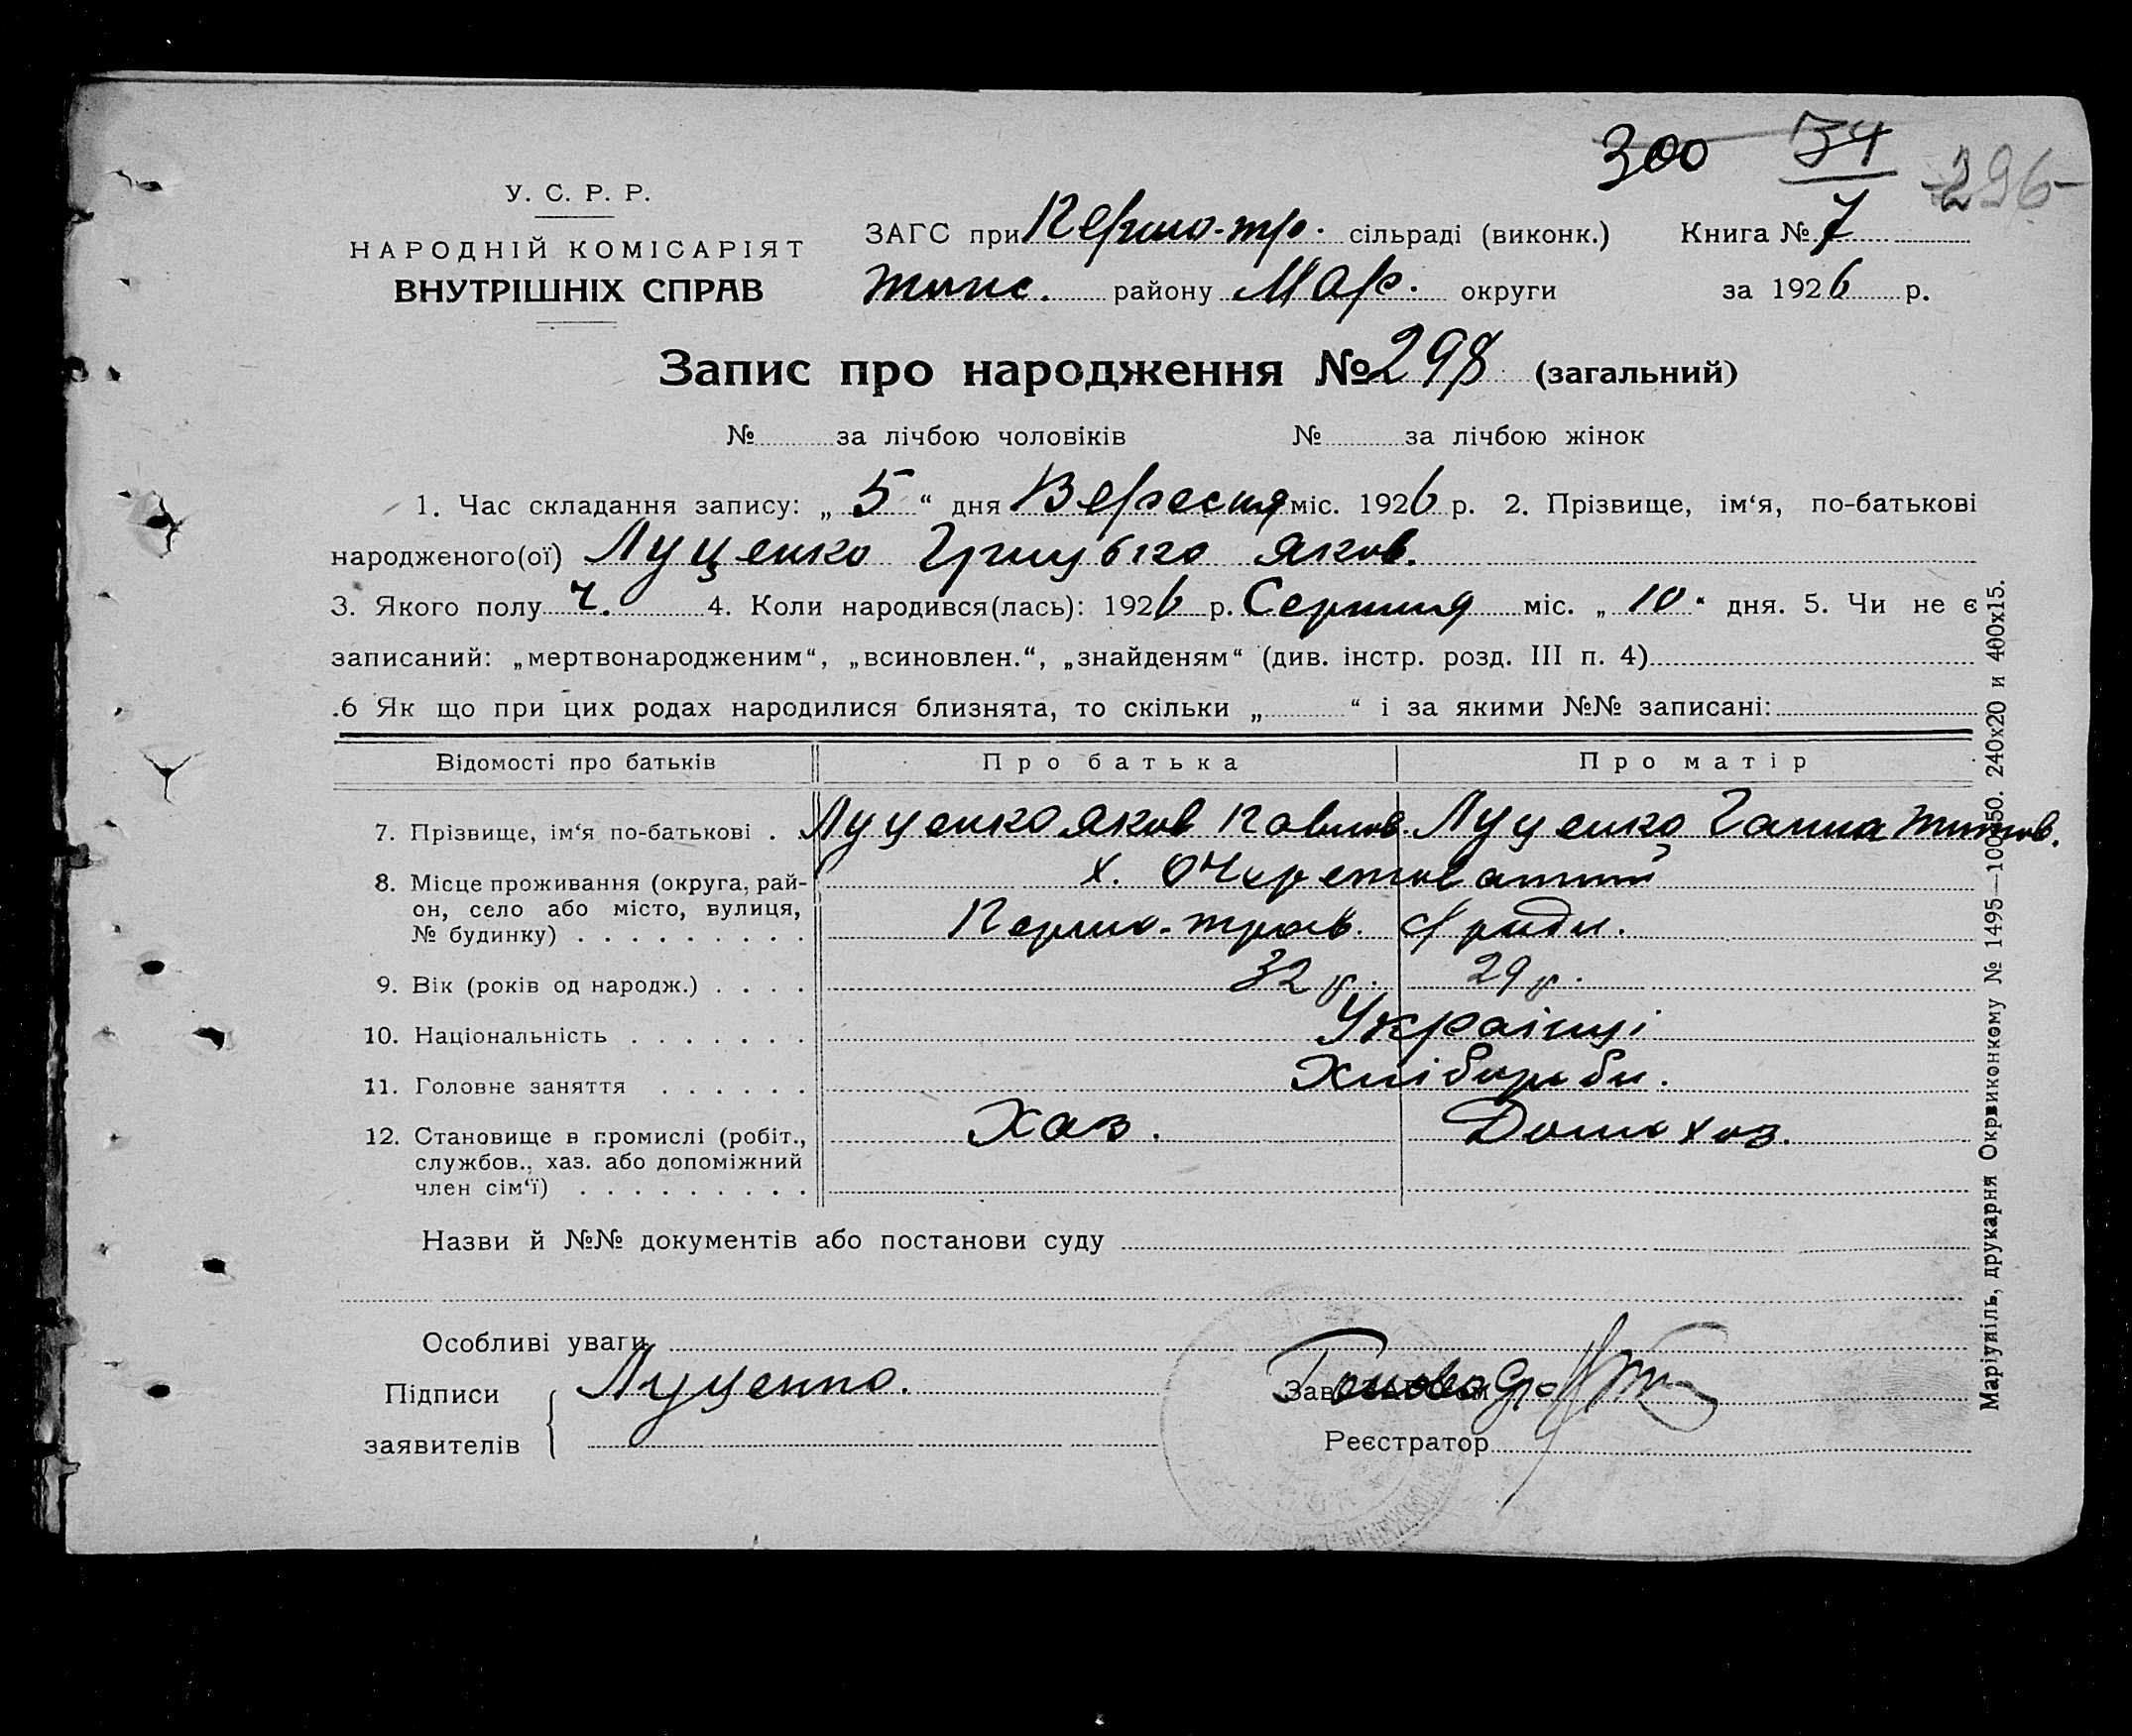 300 34 296
У. С. Р. Р.
НАРОДНІЙ КОМІСАРІЯТ
ВНУТРІШНІХ СПРАВ
ЗАГС при Першо-тр. сільраді (виконк.) Книга № 7
району Мар. округи за 1926 р.
Запис про народження № 298 (загальний)
№ за лічбою чоловіків № за лічбою жінок
1. Час складання запису: „ 5 “ дня Вересня міс. 1926 р. 2. Прізвище, ім‘я, по-батькові
народженого(ої) Луценко Яков.
3. Якого полу ч. 4. Коли народився(лась): 1926 р. Серпня міс. „ 10 “ дня. 5. Чи не є
записаний: „мертвонародженим“, „всиновлен.“, „знайденям“ (див. інстр. розд. III п. 4)
.6 Як що при цих родах народилися близнята, то скільки „ “ і за якими №№ записані:
Відомості про батьків Про батька Про матір
7. Прізвище, ім‘я по-батькові . Луценко Яков Павлов. Луценко Ганна Титов.
8. Місце проживання (округа, рай- х. Очеретоватий
он, село або місто, вулиця, Першо-трав. с/ради.
№ будинку) . . . . . . . . .
9. Вік (років од народж.) . . . . 32 р. 29 р.
10. Національність . . . . . . . Українці
11. Головне заняття . . . . . . Хлібороби.
12. Становище в промислі (робіт., Хаз. Домохоз.
службов., хаз. або допоміжний
член сім‘ї) . . . . . . . . .
Назви й №№ документів або постанови суду
Особливі уваги
Підписи Луценко.
заявителів
Голова с/ради
Реєстратор
Маріупіль, друкарня Окрвиконкому № 1495—10050. 240х20 и 400х15.